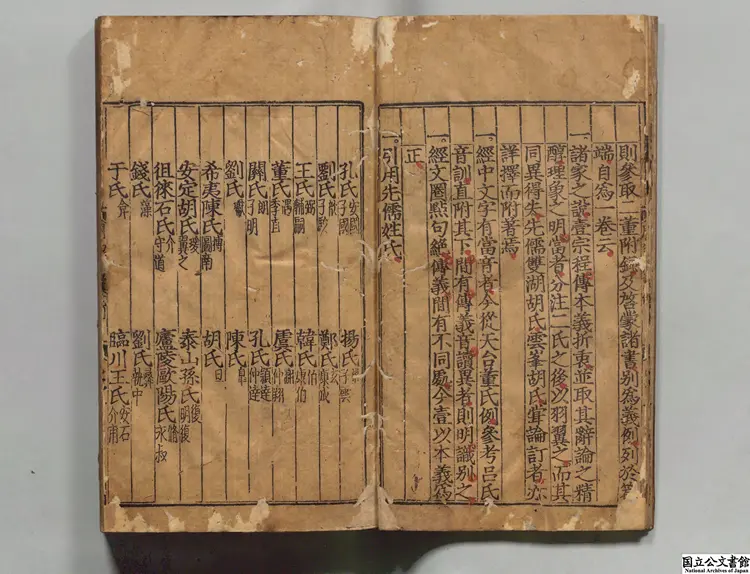 則參取二董附錄及啓蒙諸書別爲義例列於篇
端自爲一卷云
一諸家之說壹宗程傳本義折衷並取其辭論之精
醇理象之明當者分注二氏之後以羽翼之而其
同異得失先儒雙湖胡氏雲峯胡氏嘗論訂者亦
詳擇而附著焉
一經中文字有當音者今從天台董氏例參考呂氏
音訓直附其下間有傳義音讀異者則明識別之
一經文圈點句絕傳義間有不同處今壹以本義爲
正
一引用先儒姓氏
孔氏安國子國 揚氏雄子雲
劉氏歆子駿 鄭氏玄康成
王氏弼輔嗣 韓氏伯康伯
董氏遇季直 虞氏翻仲翔
關氏朗子明 孔氏穎達仲達
劉氏瓛 陳氏皐
希夷陳氏摶圖南 胡氏旦
安定胡氏瑗翼之 泰山孫氏復明復
徂徠石氏介守道 廬陵歐陽氏脩永叔
錢氏藻 劉氏彝執中
于氏弇 臨川王氏安石介甫
国立公文書館
National Archives of Japan